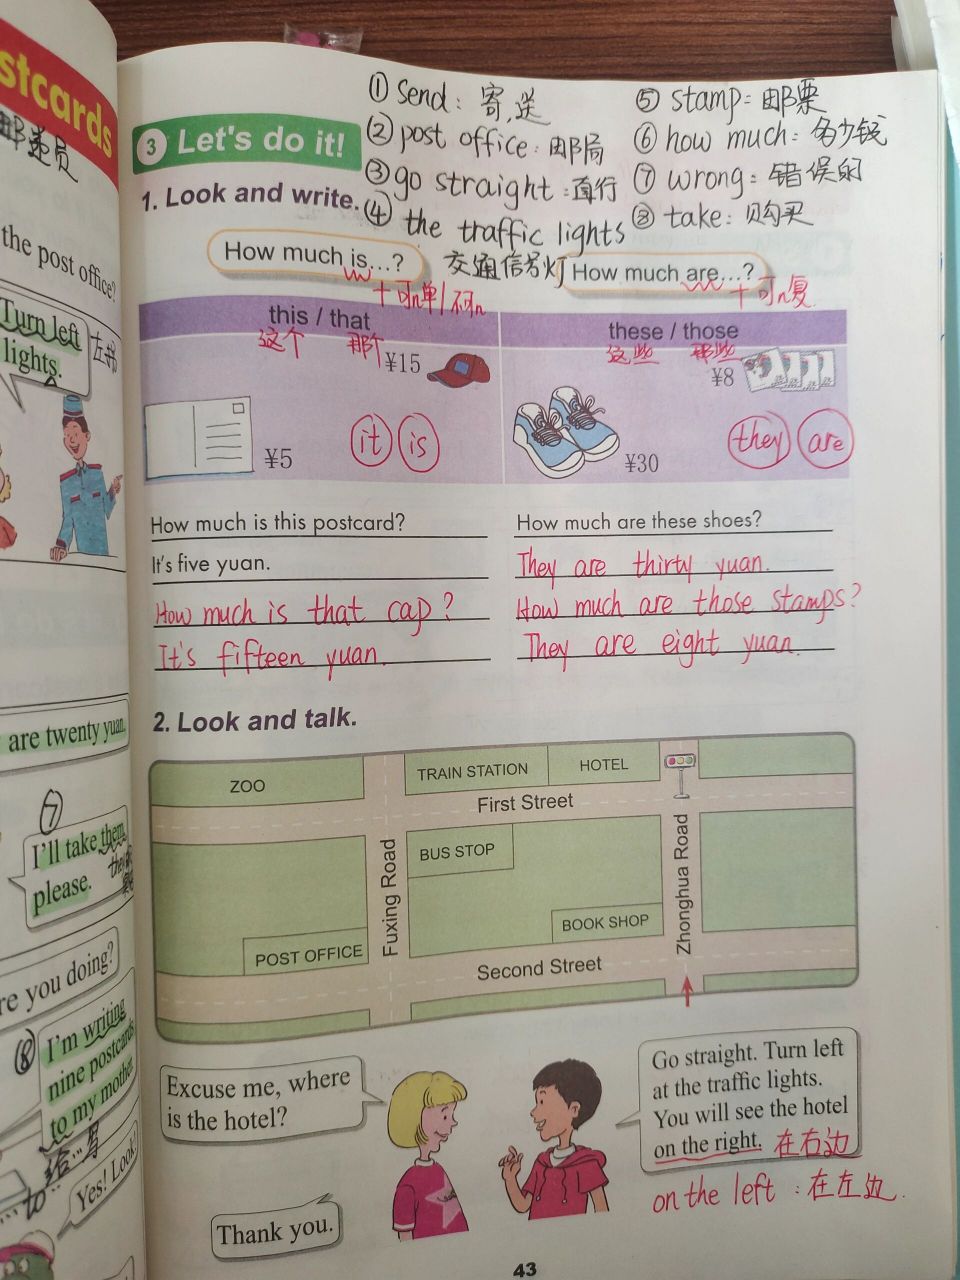 stcards
邮递员
the post office?
Turn left
lights.
are twenty yuan.
⑦
I'll take them,
please.
re you doing?
⑧
I'm writing
nine postcards
to my mother.
Yes! Look!
① send: 寄,送
② post office: 邮局
③ go straight: 直行
④ the traffic lights
交通信号灯
⑤ stamp: 邮票
⑥ how much: 多少钱
⑦ wrong: 错误的
⑧ take: 购买
3 Let's do it!
1. Look and write.
How much is...?
How much are...?
this / that
这个 那个
¥15
¥5
it is
these / those
这些 那些
¥8
¥30
they are
How much is this postcard?
It's five yuan.
How much is that cap?
It's fifteen yuan.
How much are these shoes?
They are thirty yuan.
How much are those stamps?
They are eight yuan.
2. Look and talk.
ZOO
TRAIN STATION
HOTEL
First Street
BUS STOP
Fuxing Road
Zhonghua Road
BOOK SHOP
POST OFFICE
Second Street
Excuse me, where
is the hotel?
Go straight. Turn left
at the traffic lights.
You will see the hotel
on the right. 在右边
on the left : 在左边.
Thank you.
43